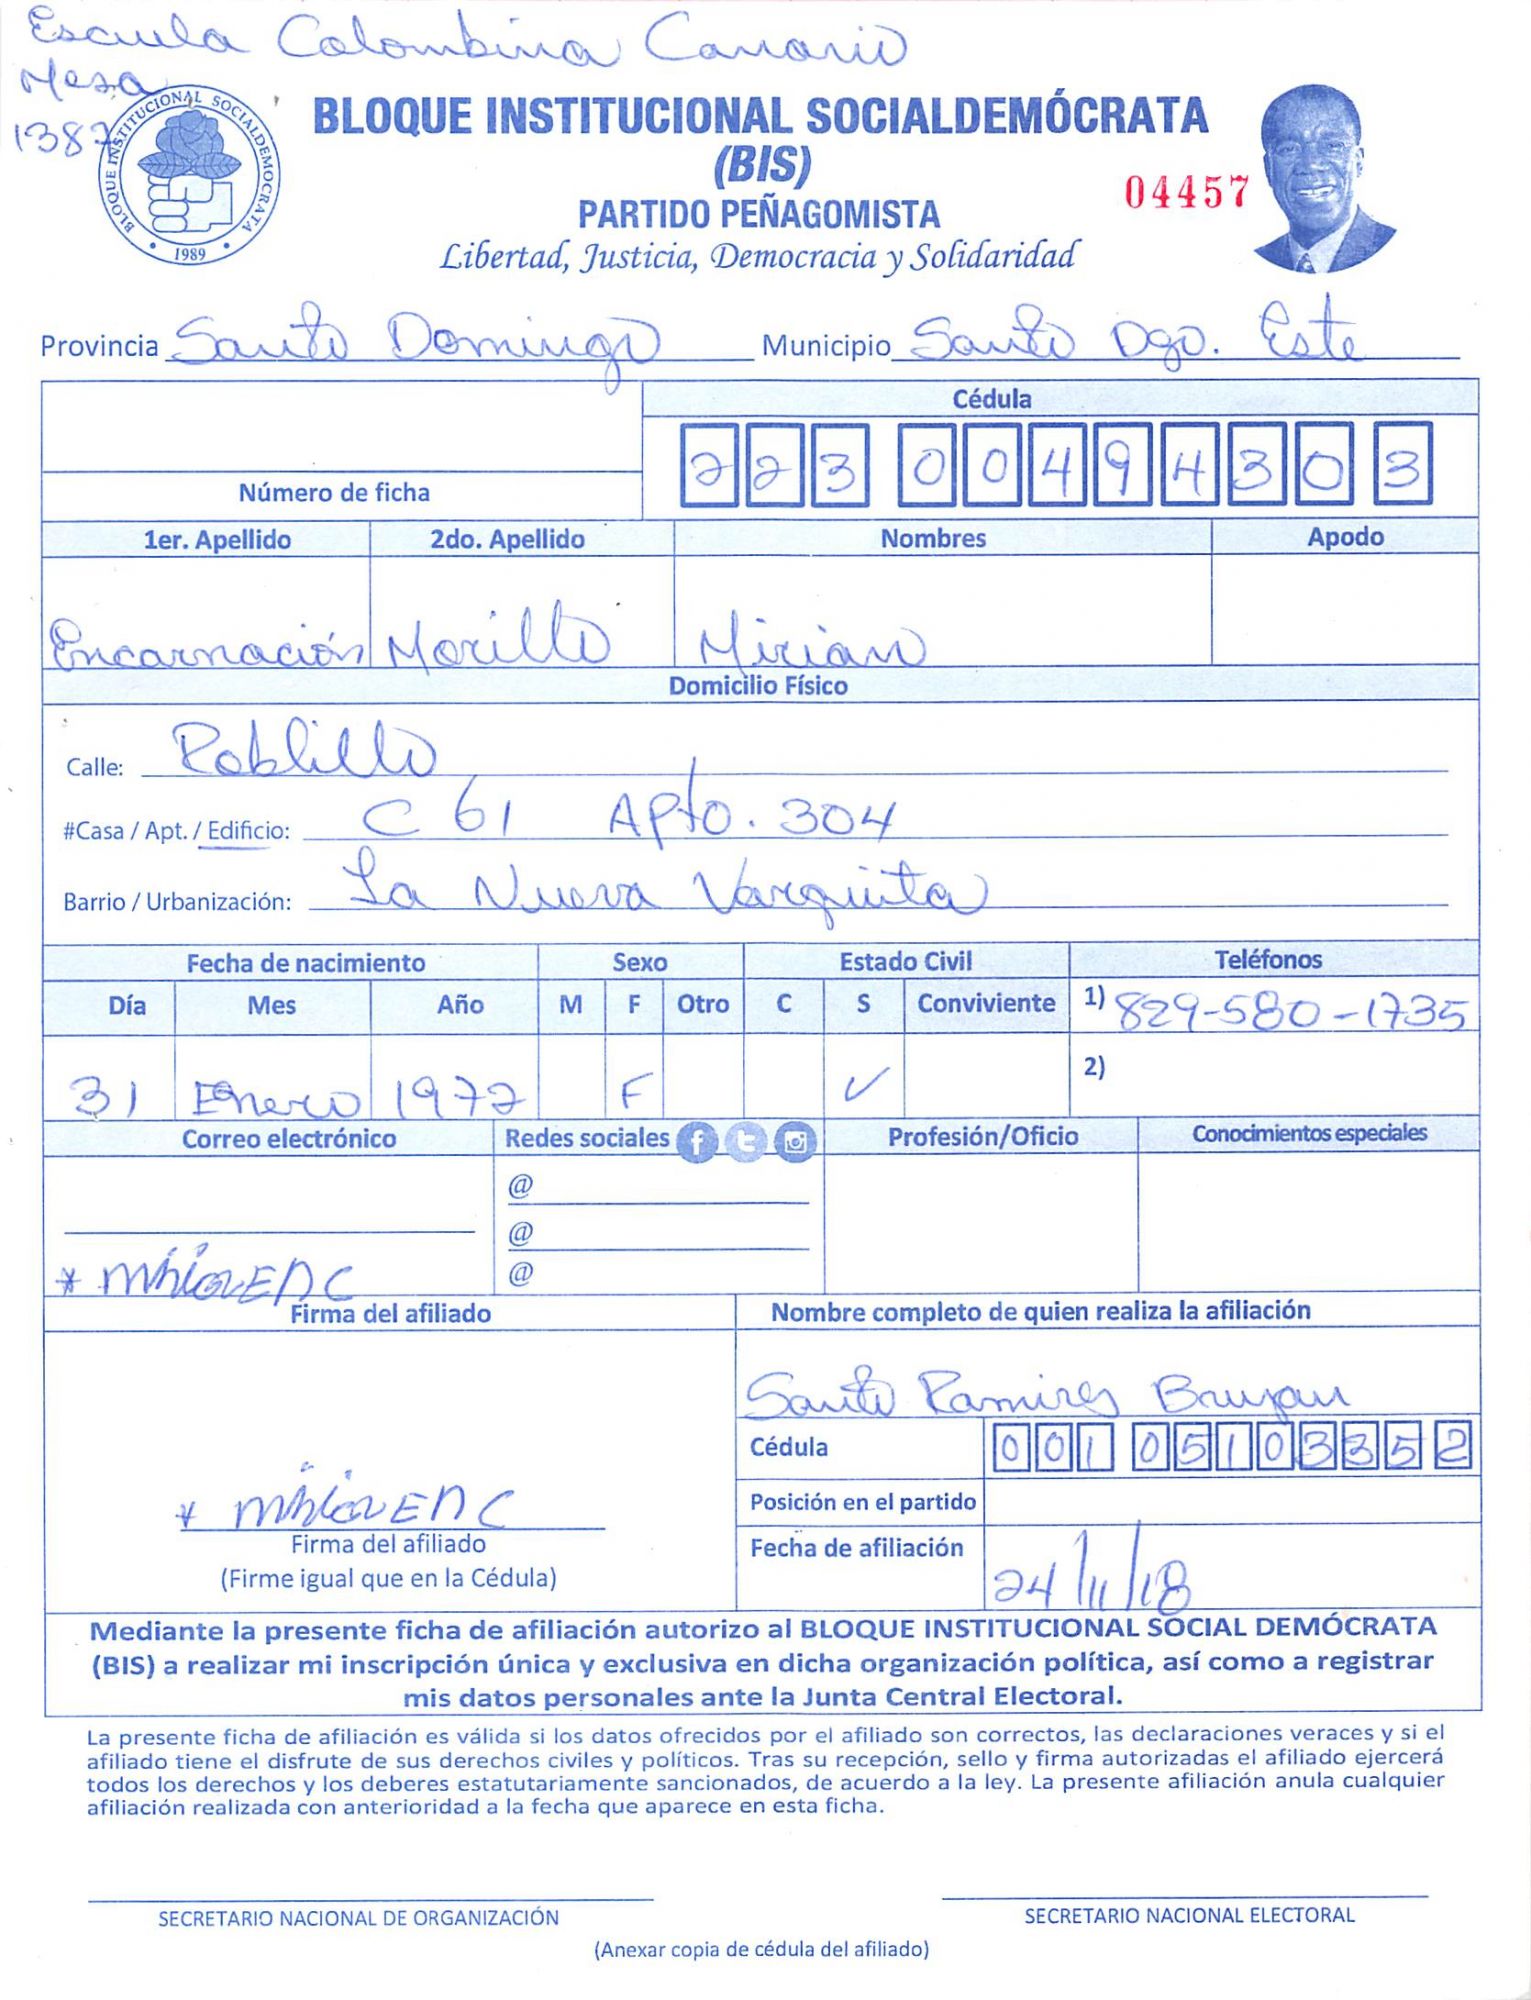 Escuela Colombina Canario
Mesa
1387
BLOQUE INSTITUCIONAL SOCIALDEMÓCRATA
1989
BLOQUE INSTITUCIONAL SOCIALDEMÓCRATA
(BIS)
04457
PARTIDO PEÑAGOMISTA
Libertad, Justicia, Democracia y Solidaridad
Provincia Santo Domingo Municipio Santo Dgo. Este
Cédula
223 0049430 3
Número de ficha
1er. Apellido 2do. Apellido Nombres Apodo
Encarnación Morillo Mirian
Domicilio Físico
Calle: Roblillo
#Casa / Apt. / Edificio: C 61 Apto. 304
Barrio / Urbanización: La Nueva Varquita
Fecha de nacimiento Sexo Estado Civil Teléfonos
Día Mes Año M F Otro C S Conviviente 1) 829-580-1735
31 Enero 1977 F ✓ 2)
Correo electrónico Redes sociales Profesión/Oficio Conocimientos especiales
@
@
@
Firma del afiliado Nombre completo de quien realiza la afiliación
Santo Ramires Brujan
Cédula 001 0510335 2
Posición en el partido
Firma del afiliado
(Firme igual que en la Cédula)
Fecha de afiliación 24/11/18
Mediante la presente ficha de afiliación autorizo al BLOQUE INSTITUCIONAL SOCIAL DEMÓCRATA
(BIS) a realizar mi inscripción única y exclusiva en dicha organización política, así como a registrar
mis datos personales ante la Junta Central Electoral.
La presente ficha de afiliación es válida si los datos ofrecidos por el afiliado son correctos, las declaraciones veraces y si el
afiliado tiene el disfrute de sus derechos civiles y políticos. Tras su recepción, sello y firma autorizadas el afiliado ejercerá
todos los derechos y los deberes estatutariamente sancionados, de acuerdo a la ley. La presente afiliación anula cualquier
afiliación realizada con anterioridad a la fecha que aparece en esta ficha.
SECRETARIO NACIONAL DE ORGANIZACIÓN SECRETARIO NACIONAL ELECTORAL
(Anexar copia de cédula del afiliado)